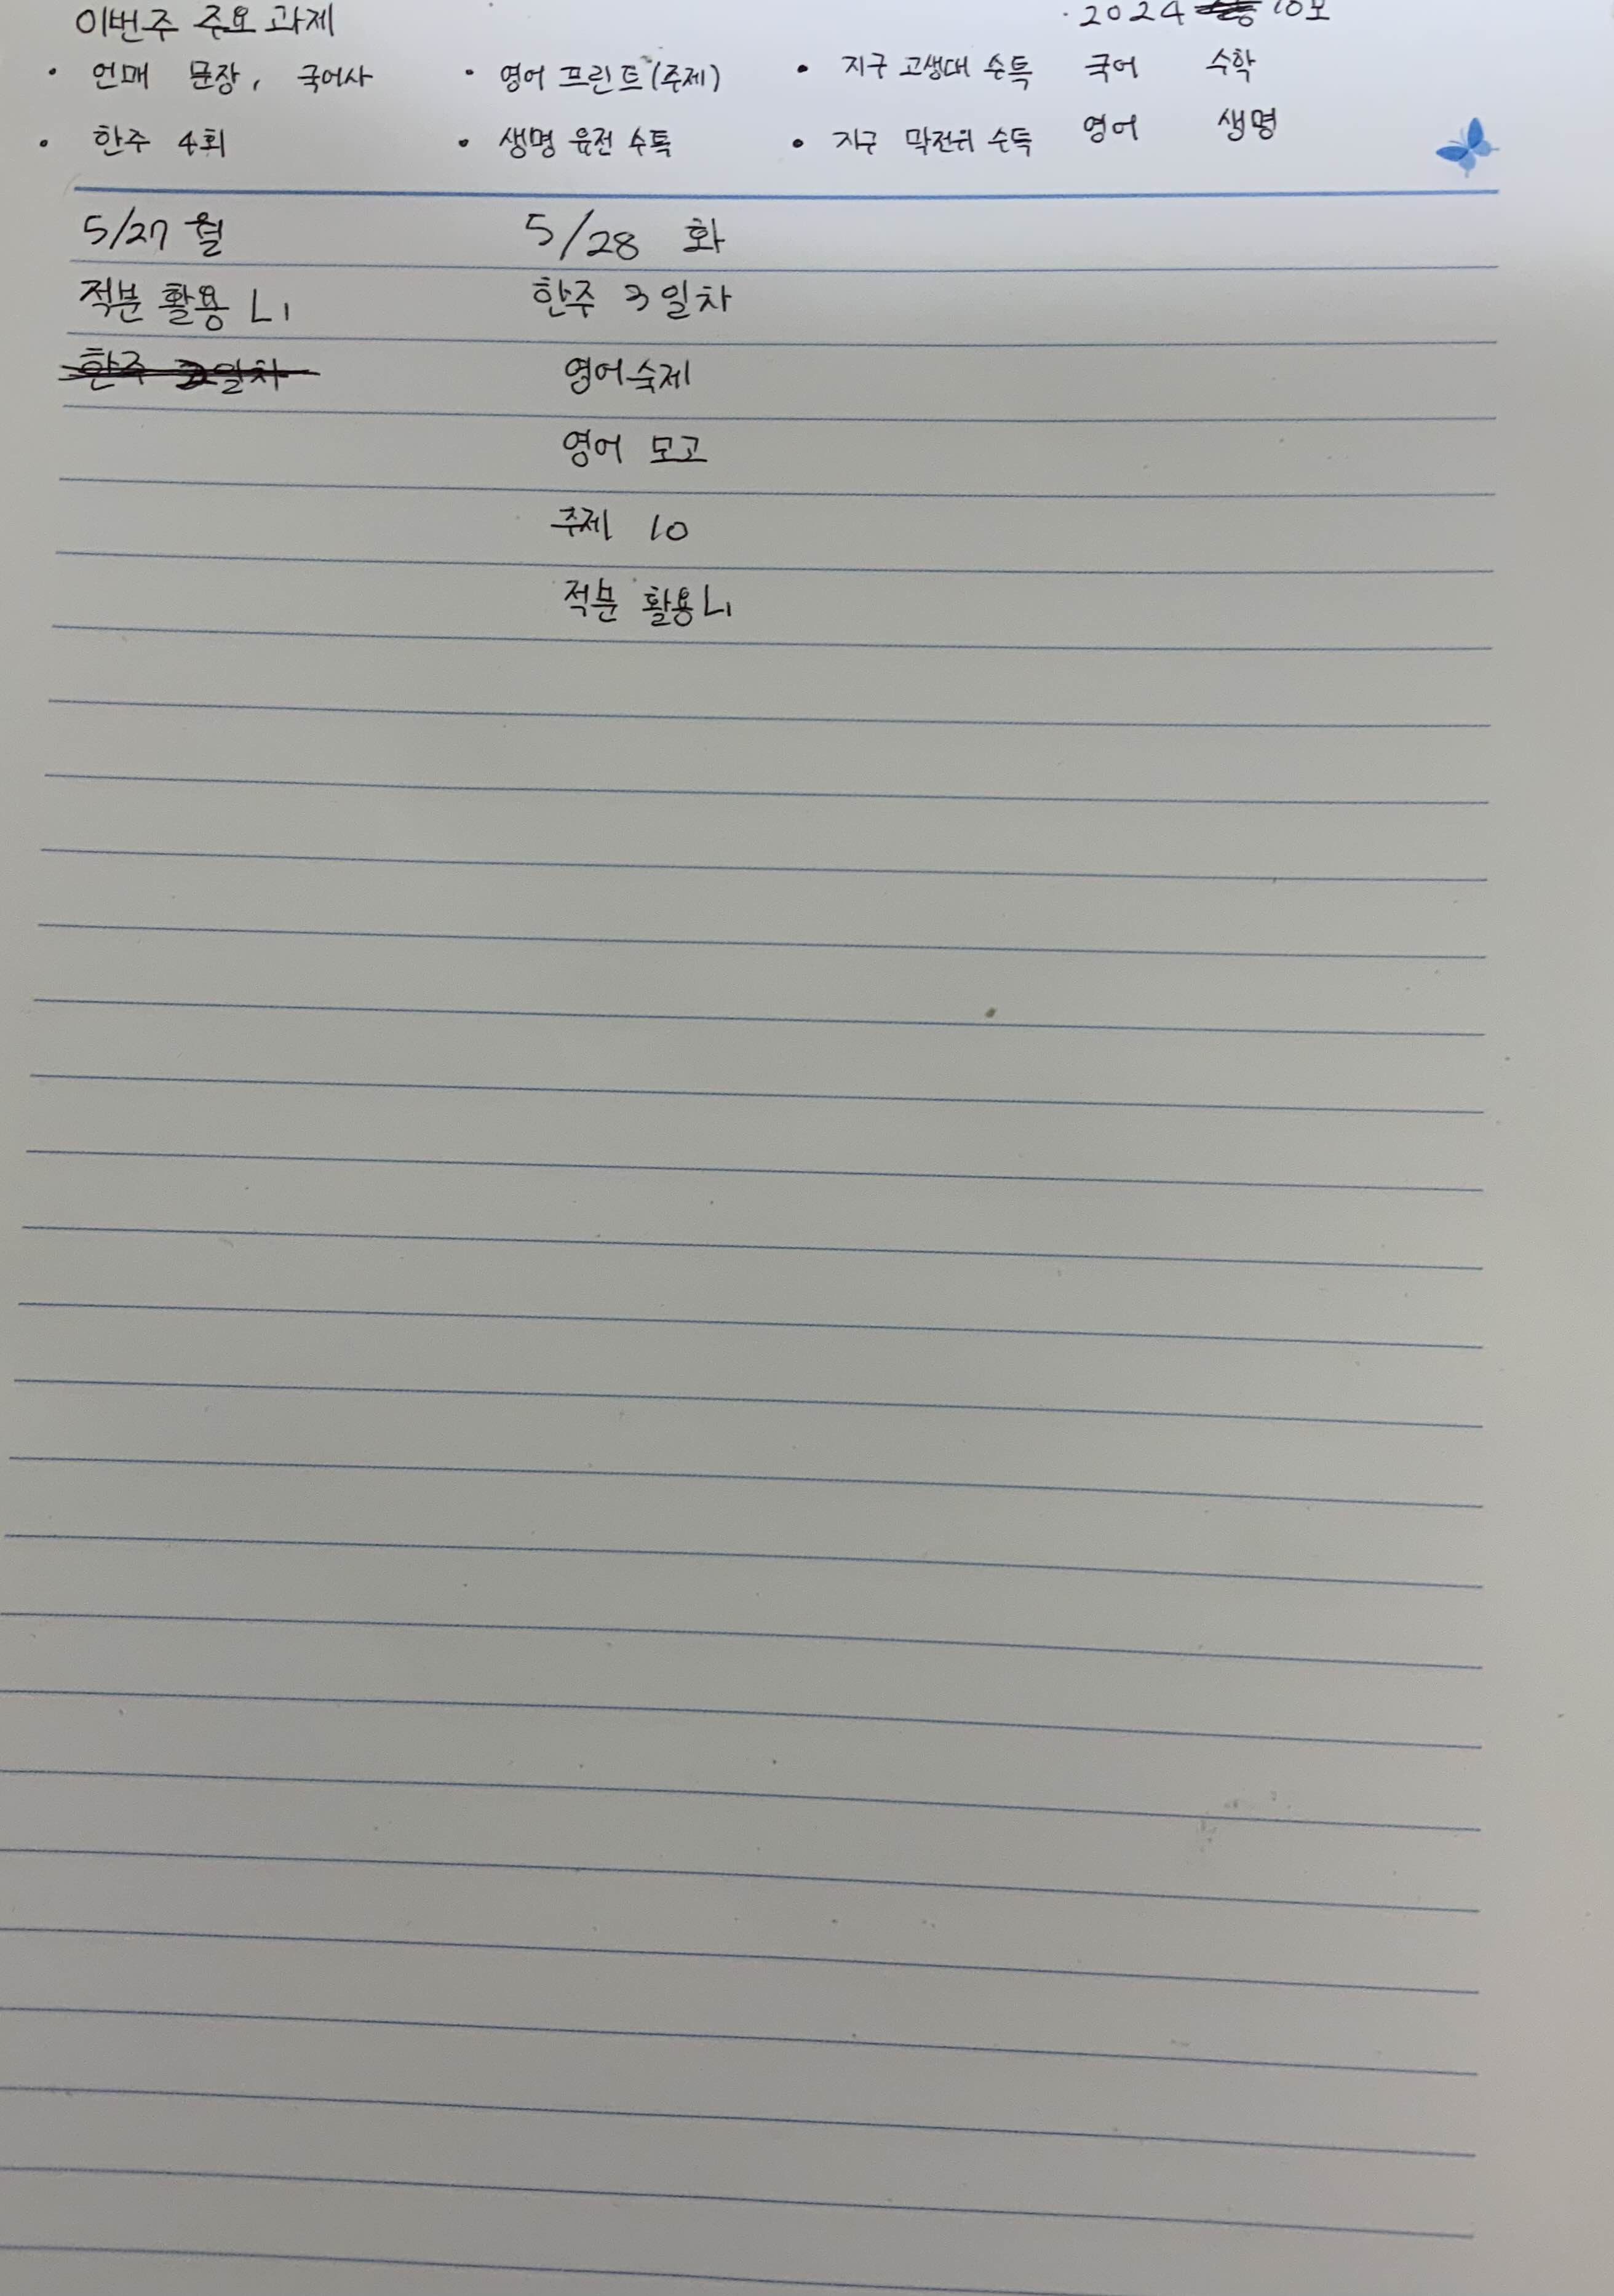 이번주 주요 과제 · 2024 10모
· 언매 문장, 국어사 · 영어 프린트(주제) · 지구 고생대 수특 국어 수학
· 한주 4회 · 생명 유전 수특 · 지구 막전위 수특 영어 생명
5/27 월 5/28 화
적분 활용 L1 한주 3일차
한주 2일차 영어숙제
영어 모고
주제 10
적분 활용 L1